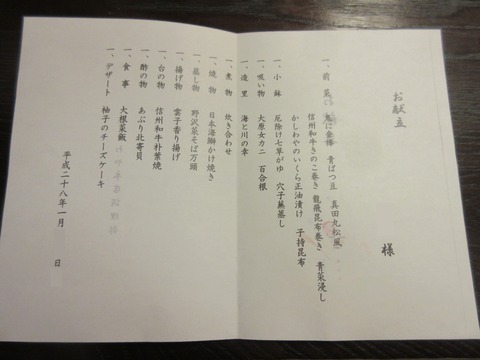 お献立
様
一、前菜 鬼に金棒 青ばつ豆 真田丸松風
信州和牛きのこ巻き 龍飛昆布巻き 青菜浸し
かしわやのいくら正油漬け 子持昆布
一、小鉢 厄除け七草がゆ 穴子蕪蒸し
一、吸い物 大原女カニ 百合根
一、造里 海と川の幸
一、煮物 炊き合わせ
一、焼物 日本海鰤かけ焼き
一、蒸し物 野沢菜そば万頭
一、揚げ物 雲子香り揚げ
一、台の物 信州和牛朴葉焼
一、酢の物 あぶり北寄貝
一、食事 大根菜飯
一、デザート 柚子のチーズケーキ
平成二十八年一月 日